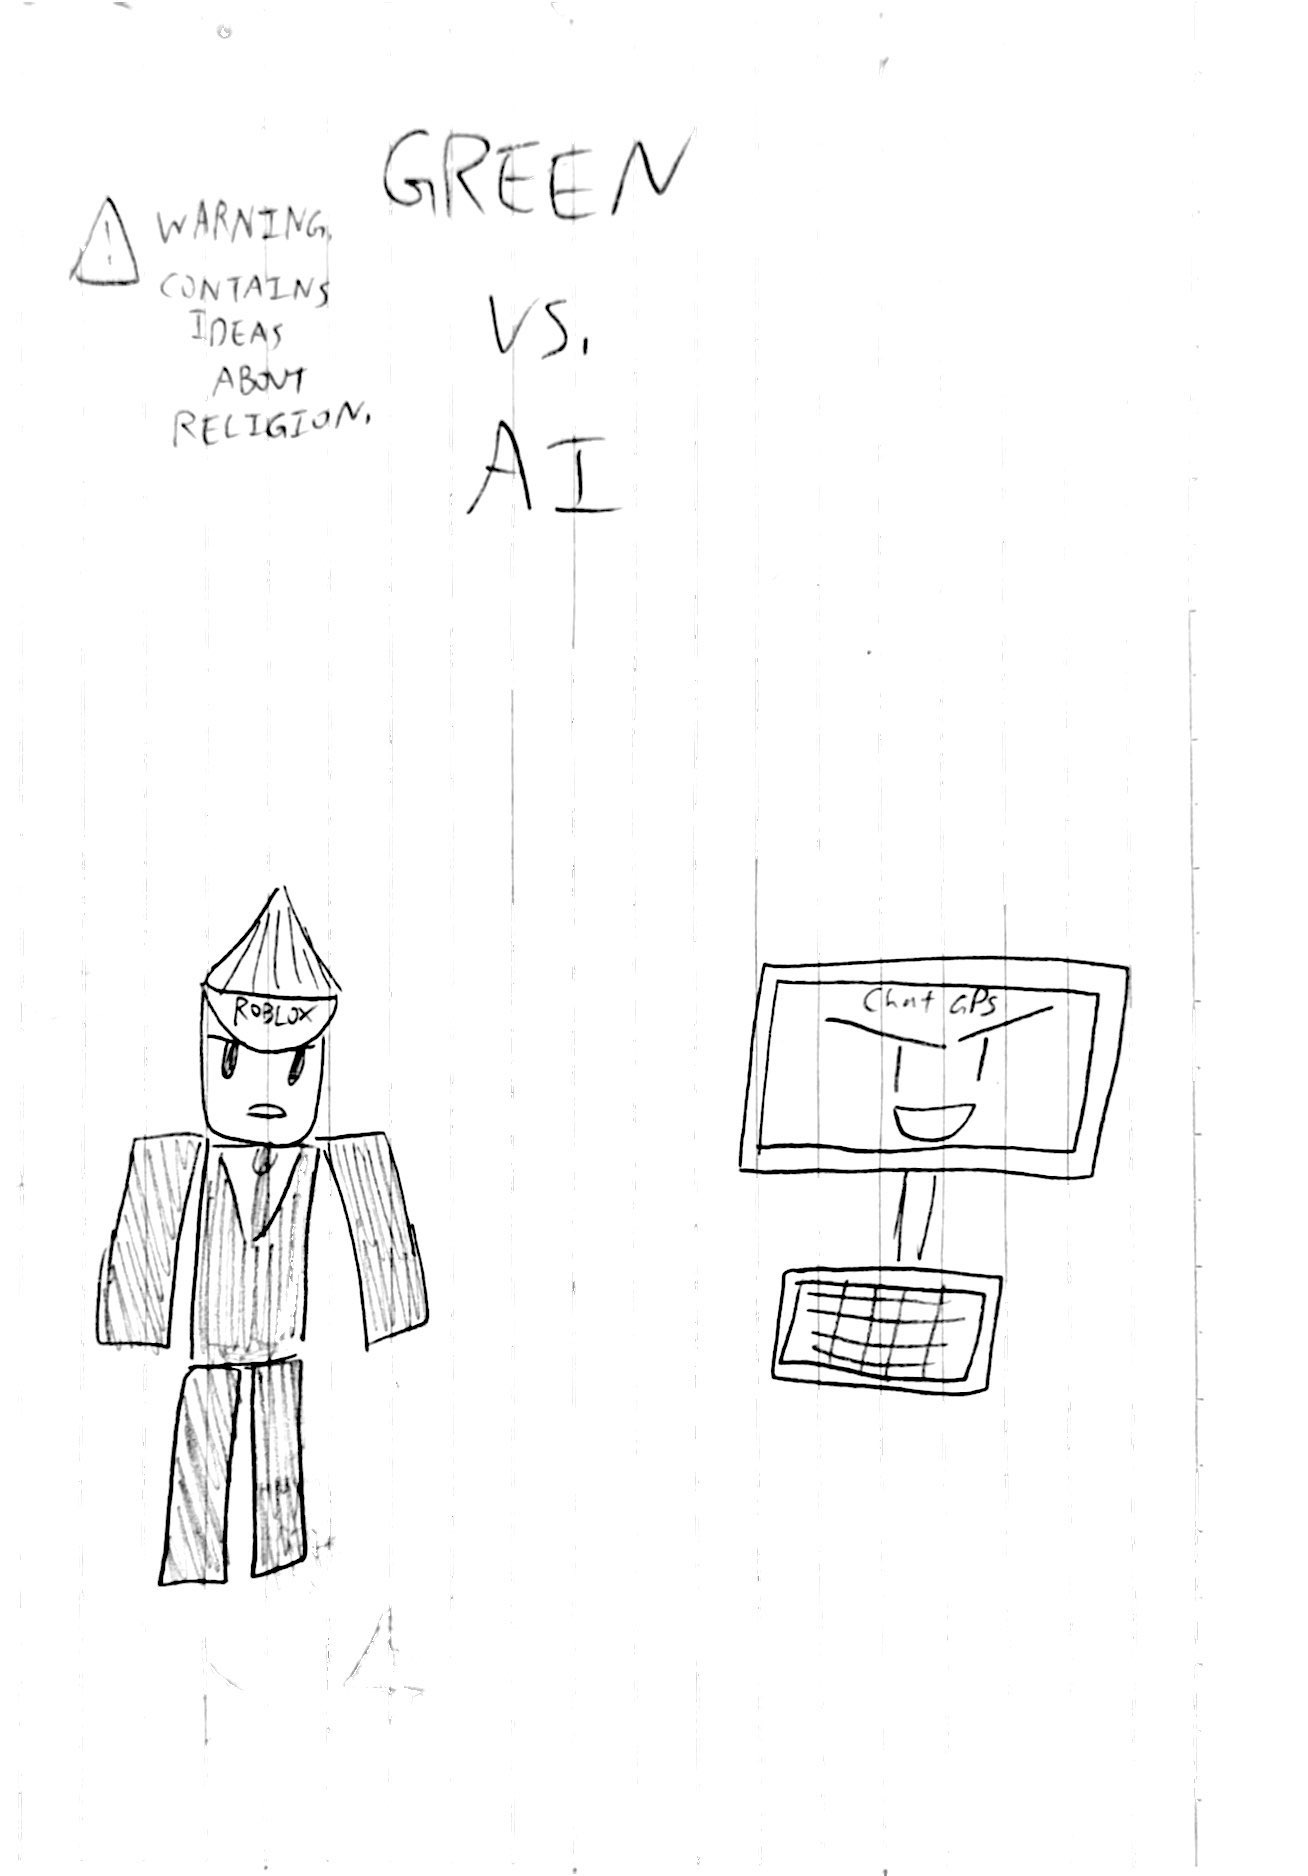 GREEN
VS.
AI
WARNING.
CONTAINS
IDEAS
ABOUT
RELIGION.
ROBLOX
Chat GPs